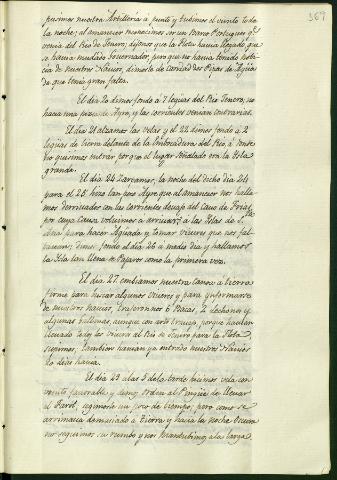 367
pusimos nuestra Artilleria á punto y tubimos el viento toda
la noche; al amanecer reconocimos ser un Barco Portugues qe.
venia del Rio de Jenero; dijonos que la Flota havia llegado, que
se havia mudado Governador, pero que no havia tenido noti-
cia de nuestros Navios, dimosle de Caridad dos Pipas de Agua
de que tenia gran falta.
El dia 20 dimos fondo á 7 leguas del Rio Jenero, no
havia una pizca de Ayre, y las corrientes venian contrarias.
El dia 21 alzamos las velas y el 22 dimos fondo á 2
leguas de tierra delante de la embocadura del Rio, á donde
no quisimos entrar porque el lugar señalado era la Isla
grande.
El dia 24 Zarpamos, la noche del dicho dia 24
para el 25 hizo tan poco Ayre que al amanecer nos halla-
mos derrivados con las corrientes devajo del Cavo de Frias,
por cuya causa volvimos á arrivar á las Islas de Sta.
Ana para hacer Aguada y tomar viveres que nos fal-
tavan; dimos fondo el dia 26 á medio dia y hallamos
la Isla tan llena de Pajaros como la primera vez.
El dia 27 embiamos nuestra Canoa á tierra
firme para buscar algunos viveres y para ynformarse
de nuestros Navios, trajeronnos 6 Bacas, 2 Lechones y
algunas Gallinas, aunque con arto trabajo, porque havian
llevado todos los viveres al Rio de Jenero para la Flota
supimos, tambien havian ya entrado nuestros Navios
10 dias havia.
El dia 29 á las 5 de la tarde hicimos vela con
viento favorable y dimos orden al Pingüe de llevar
el Farol, seguimosle un poco de tiempo, pero como se
arrimava demasiado á Tierra y hacia la noche obscura
no seguimos su rumbo y nos mantubimos á la larga